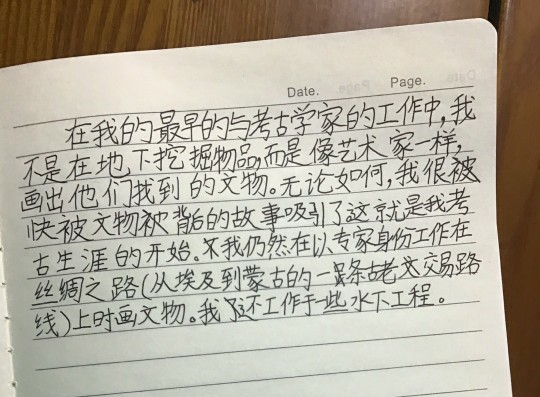 Date. Page.
在我的最早的与考古学家的工作中,我
不是在地下挖掘物品,而是像艺术家一样,
画出他们找到的文物。无论如何,我很被
快被文物被背后的故事吸引了这就是我考
古生涯的开始。我仍然在以专家身份工作在
丝绸之路(从埃及到蒙古的一条古老交易路
线)上时画文物。我还工作于一些水下工程。